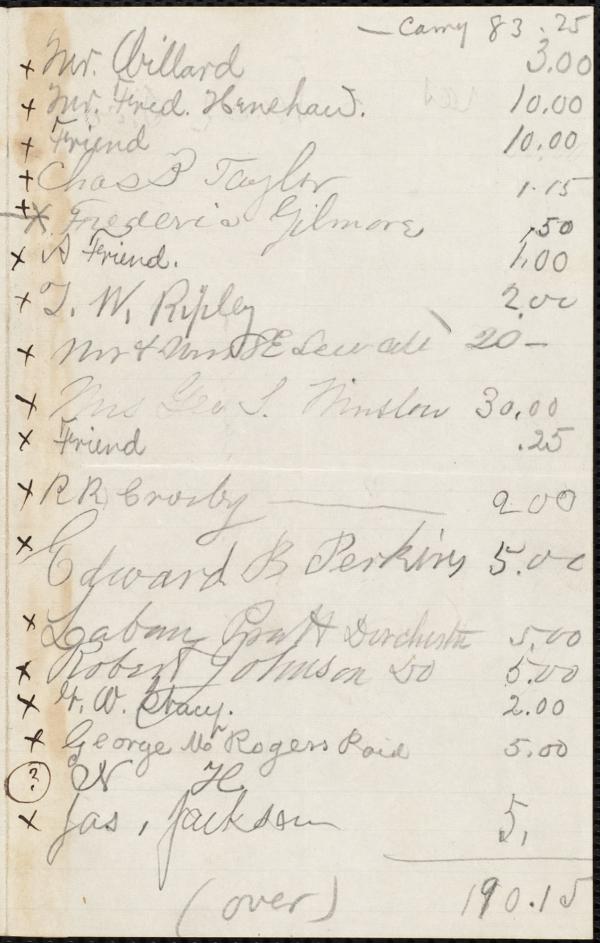 — Carry 83.25
x Mr. Willard 3.00
x Mr. Fred. Henshaw. 10.00
x Friend 10.00
x Chas P Taylor 1.15
x Frederic Gilmore .50
x A Friend. 1.00
x T. W. Ripley 2.00
x Mr & Mrs SE Sewall 20—
x Mrs Geo S. Winslow 30.00
x Friend .25
x RR Crosby —— 2 00
x Edward B Perkins 5.00
x Laban Pratt Dorchester 5.00
x Robert Johnson Do 5.00
x W. Stacy. 2.00
x George M Rogers Paid 5.00
? N H.
x Jas, Jackson 5,
(over) 190.15